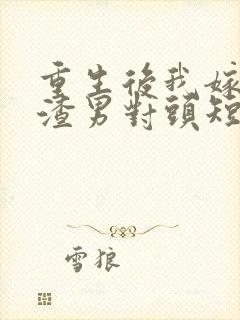 重生後我嫁
渣男對頭短
雪狼